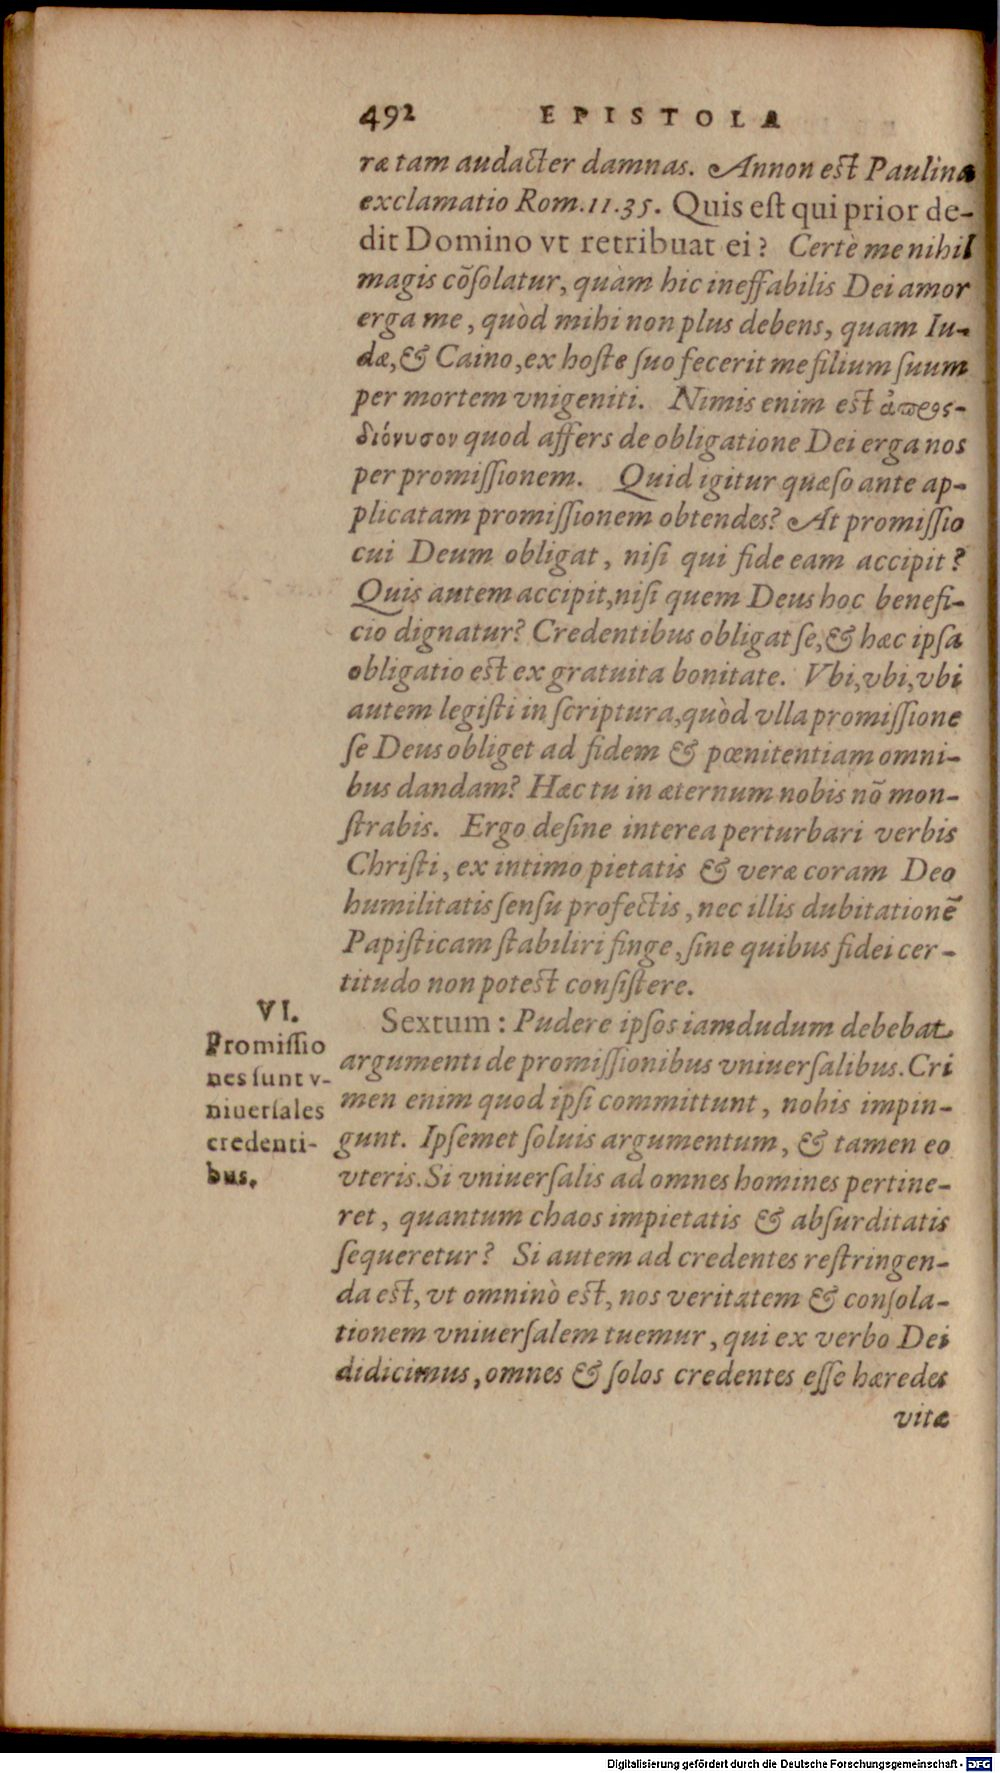 492 EPISTOLA
ræ tam audacter damnas. Annon est Paulina
exclamatio Rom.11.35. Quis est qui prior de-
dit Domino vt retribuat ei? Certè me nihil
magis cõsolatur, quàm hic ineffabilis Dei amor
erga me, quòd mihi non plus debens, quam Iu-
dæ, & Caino, ex hoste suo fecerit me filium suum
per mortem vnigeniti. Nimis enim est ἀπροσ-
διόνυσον quod affers de obligatione Dei erga nos
per promissionem. Quid igitur quæso ante ap-
plicatam promissionem obtendes? At promissio
cui Deum obligat, nisi qui fide eam accipit?
Quis autem accipit, nisi quem Deus hoc benefi-
cio dignatur? Credentibus obligat se, & hæc ipsa
obligatio est ex gratuita bonitate. Vbi, vbi, vbi
autem legisti in scriptura, quòd vlla promissione
se Deus obliget ad fidem & pœnitentiam omni-
bus dandam? Hæc tu in æternum nobis nõ mon-
strabis. Ergo desine interea perturbari verbis
Christi, ex intimo pietatis & veræ coram Deo
humilitatis sensu profectis, nec illis dubitationẽ
Papisticam stabiliri finge, sine quibus fidei cer-
titudo non potest consistere.
VI.
Promissio
nes sunt v-
niuersales
credenti-
bus.
Sextum: Pudere ipsos iamdudum debebat
argumenti de promissionibus vniuersalibus. Cri
men enim quod ipsi committunt, nobis impin-
gunt. Ipsemet soluis argumentum, & tamen eo
vteris. Si vniuersalis ad omnes homines pertine-
ret, quantum chaos impietatis & absurditatis
sequeretur? Si autem ad credentes restringen-
da est, vt omninò est, nos veritatem & consola-
tionem vniuersalem tuemur, qui ex verbo Dei
didicimus, omnes & solos credentes esse hæredes
vitæ
Digitalisierung gefördert durch die Deutsche Forschungsgemeinschaft - DFG